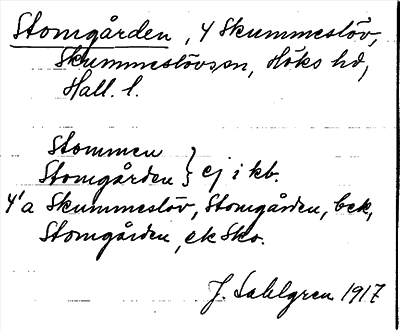 Stomgården, 4 Skummeslöv,
Skummeslövs sn, Höks hd,
Hall. l.
Stommen
Stomgården } ej i kb.
4'a Skummeslöv, Stomgården, bek,
Stomgården, ek Sko.
J. Sahlgren 1917